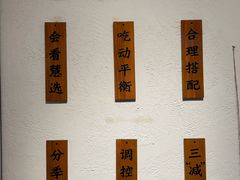 合理搭配
吃动平衡
会看慧选
三"减"
调控
分季